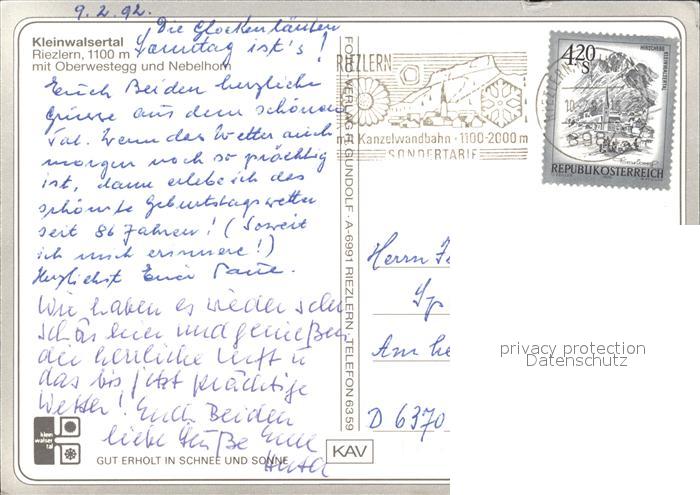 9.2.92.
Die Glocken läuten
Samstag ist's!
Kleinwalsertal
Riezlern, 1100 m
mit Oberwestegg und Nebelhorn
Euch Beiden herzliche
Grüsse aus dem schönen
Tal. Wenn das Wetter auch
morgen noch so prächtig
ist, dann erlebe ich das
schönste Geburtstagswetter
seit 86 Jahren! (Soweit
ich mich erinnere!)
Herzlichst Euer
Wir haben es wieder sehr
schön hier und genießen
die herrliche Luft u
das bis jetzt prächtige
Wetter! Euch Beiden
liebe Grüße Eure
klein
walser
tal
GUT ERHOLT IN SCHNEE UND SONNE
KAV
FOTO-VERLAG H. GUNDOLF · A-6991 RIEZLERN, TELEFON 6359
RIEZLERN
Kanzelwandbahn · 1100-2000 m
SONDERTARIF
4.20
S
HIRSCHEGG KLEINWALSERTAL
REPUBLIK ÖSTERREICH
Herrn
Am
D 6370
privacy protection
Datenschutz